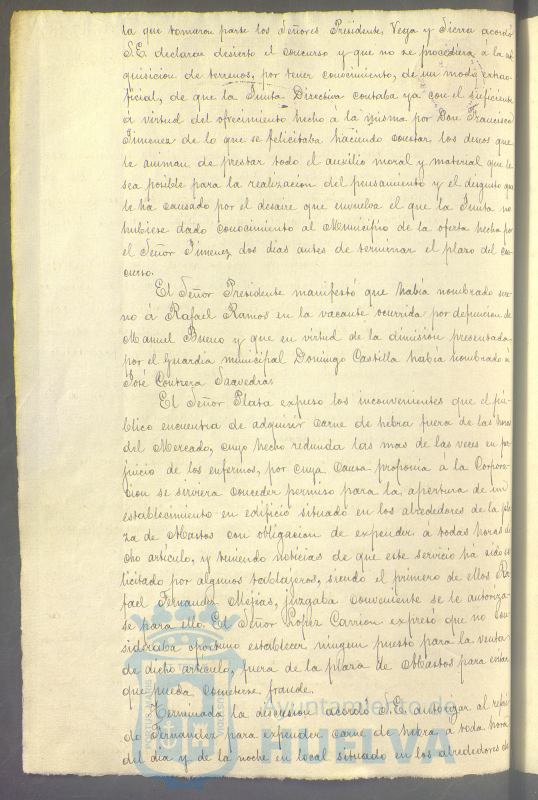 la que tomaron parte los Señores Presidente, Vega y Sierra acordó
S.E. declarar desierto el concurso y que no se procediera á la ad
quisicion de terrenos, por tener conocimiento, de un modo extrao
ficial, de que la Junta Directiva contaba ya con el suficiente
á virtud del ofrecimiento hecho á la misma por Don Francisco
Jimenez de lo que se felicitaba haciendo constar los deseos que
le animan de prestar todo el auxilio moral y material que le
sea posible para la realizacion del pensamiento y el disgusto que
le ha causado por el desaire que envuelve el que la Junta no
hubiese dado conocimiento al Municipio de la oferta hecha por
el Señor Jimenez dos dias antes de terminar el plazo del con
curso.
El Señor Presidente manifestó que habia nombrado sere
no á Rafael Ramos en la vacante ocurrida por defuncion de
Manuel Bueno y que en virtud de la dimision presentada
por el Guardia municipal Domingo Castilla habia nombrado á
José Contrera Saavedra.
El Señor Plata expuso los inconvenientes que el pú
blico encuentra de adquirir carne de hebra fuera de las horas
del Mercado, cuyo hecho redunda las mas de las veces en per
juicio de los enfermos, por cuya causa proponia á la Corpora
cion se sirviera conceder permiso para la apertura de un
establecimiento en edificio situado en los alrededores de la pla
za de Abastos con obligacion de expender á todas horas di
cho articulo, y teniendo noticias de que este servicio há sido so
licitado por algunos tablajeros, siendo el primero de ellos Ra
fael Fernandez Mejias, juzgaba conveniente se le autoriza
se para ello. El Señor Lopez Carrion expresó que no con
sideraba oportuno establecer ningun puesto para la venta
de dicho articulo, fuera de la plaza de Abastos para evitar
que pueda cometerse fraude.
Terminada la discusion acordó S.E. autorizar al referi
do Fernandez para expender carne de hebra á toda hora
del dia y de la noche en local situado en los alrededores de
Ayuntamiento de
HUELVA